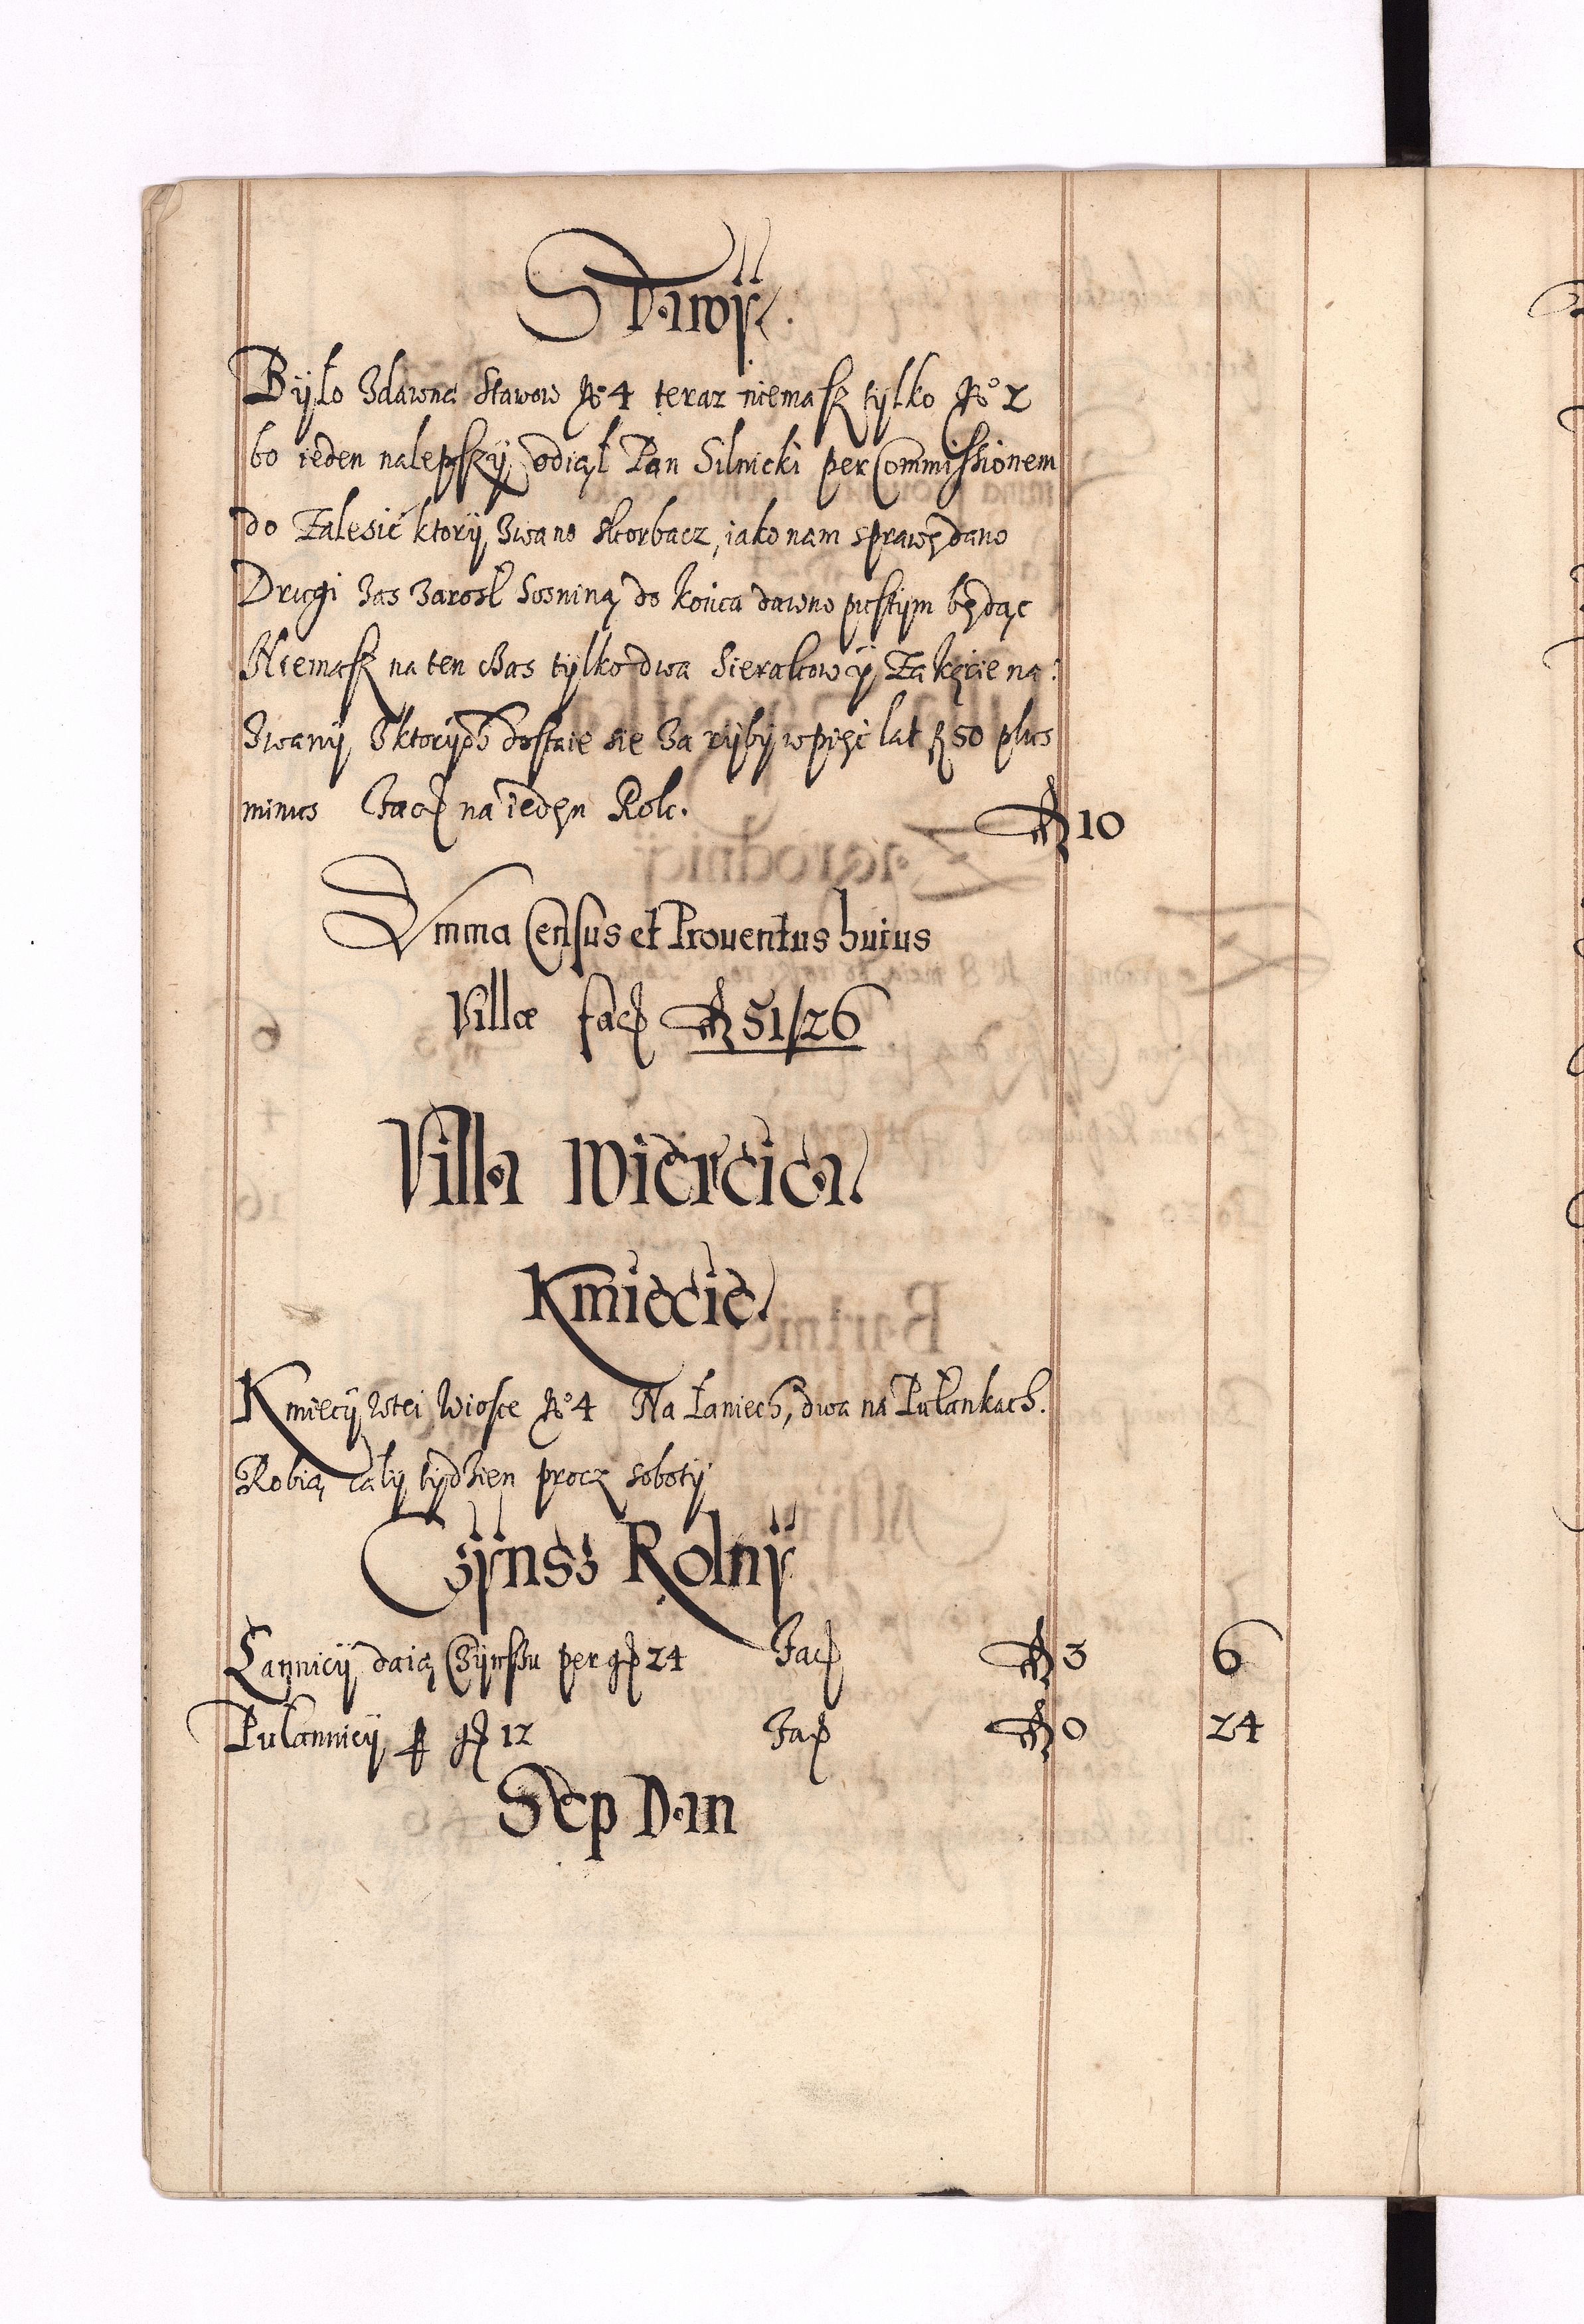 Stawÿ.
Bÿło Zdawna Stawow No 4 teraz niemasz tÿlko No 2
bo ieden nalepszÿ odiął Pan Silnicki per Commissionem
do Zalesic ktorÿ zwano skorbacz, iako nam sprawę dano
Drugi zas zarosł Sosniną do końca dawno pustÿm będąc
Niemasz na ten czas tÿlko dwa Sierakowÿ Zakęcie na:
zwanÿ Z ktorÿch dostaie sie za rÿbÿ w pięć lat fl 50 plus
minus Facit na ieden Rok. fl 10
Summa Census et Prouentus huius
Villæ facit fl 51/26
Villa Wiercica
Kmiecie
Kmiecÿ wtei Wiosce No 4 Na Łaniech, dwa na Pułankach.
Robią całÿ tÿdzien procz sobotÿ
Czÿnsz Rolnÿ
Łannicÿ daią Czÿnszu per gr 24 Facit fl 3 6
Pułannicÿ per gr 12 Facit fl 0 24
Sep Dan